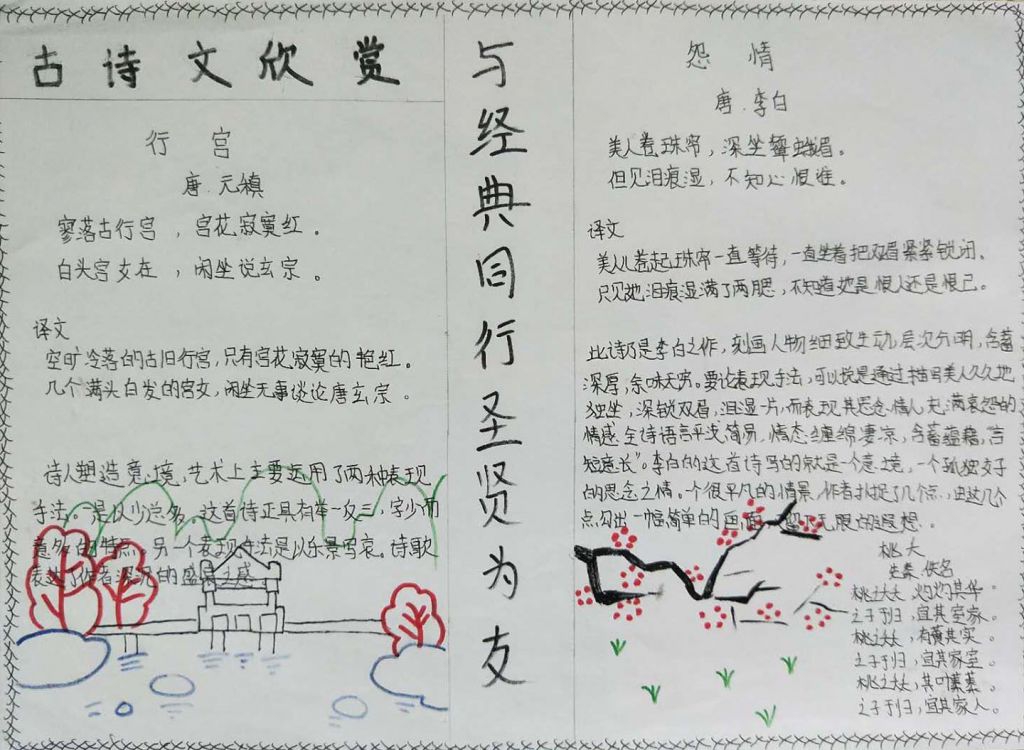 古诗文欣赏
行宫
唐.元稹
寥落古行宫，宫花寂寞红。
白头宫女在，闲坐说玄宗。
译文
空旷冷落的古旧行宫，只有宫花寂寞的艳红。
几个满头白发的宫女，闲坐无事谈论唐玄宗。
诗人塑造意境，艺术上主要运用了两种表现
手法。一是以少总多。这首诗正具有举一反三，字少而
意多的特点。另一个表现手法是以乐景写哀。诗歌
表达了作者深沉的盛衰之感
与经典同行圣贤为友
怨情
唐.李白
美人卷珠帘，深坐颦蛾眉。
但见泪痕湿，不知心恨谁。
译文
美人儿卷起珠帘一直等待，一直坐着把双眉紧紧锁闭。
只见她泪痕湿满了两腮，不知道她是恨人还是恨己。
此诗乃是李白之作，刻画人物细致生动，层次分明，含蓄
深厚，余味无穷。要论表现手法，可以说是通过描写美人久久地
独坐，深锁双眉，泪湿一片，而表现其思念情人充满哀怨的
情感。全诗语言平浅简易，情态缠绵凄凉，含蓄蕴藉，言
短意长"。李白的这首诗写的就是一个意境，一个孤独女子
的思念之情。个很平凡的情景，作者扑捉了几个点，由这几个
点勾出一幅简单的画面，留了无限的遐想．
桃夭
先秦.佚名
桃之夭夭，灼灼其华。
之子于归，宜其室家。
桃之夭夭，有蕡其实。
之子于归，宜其家室。
桃之夭夭，其叶蓁蓁。
之子于归，宜其家人。